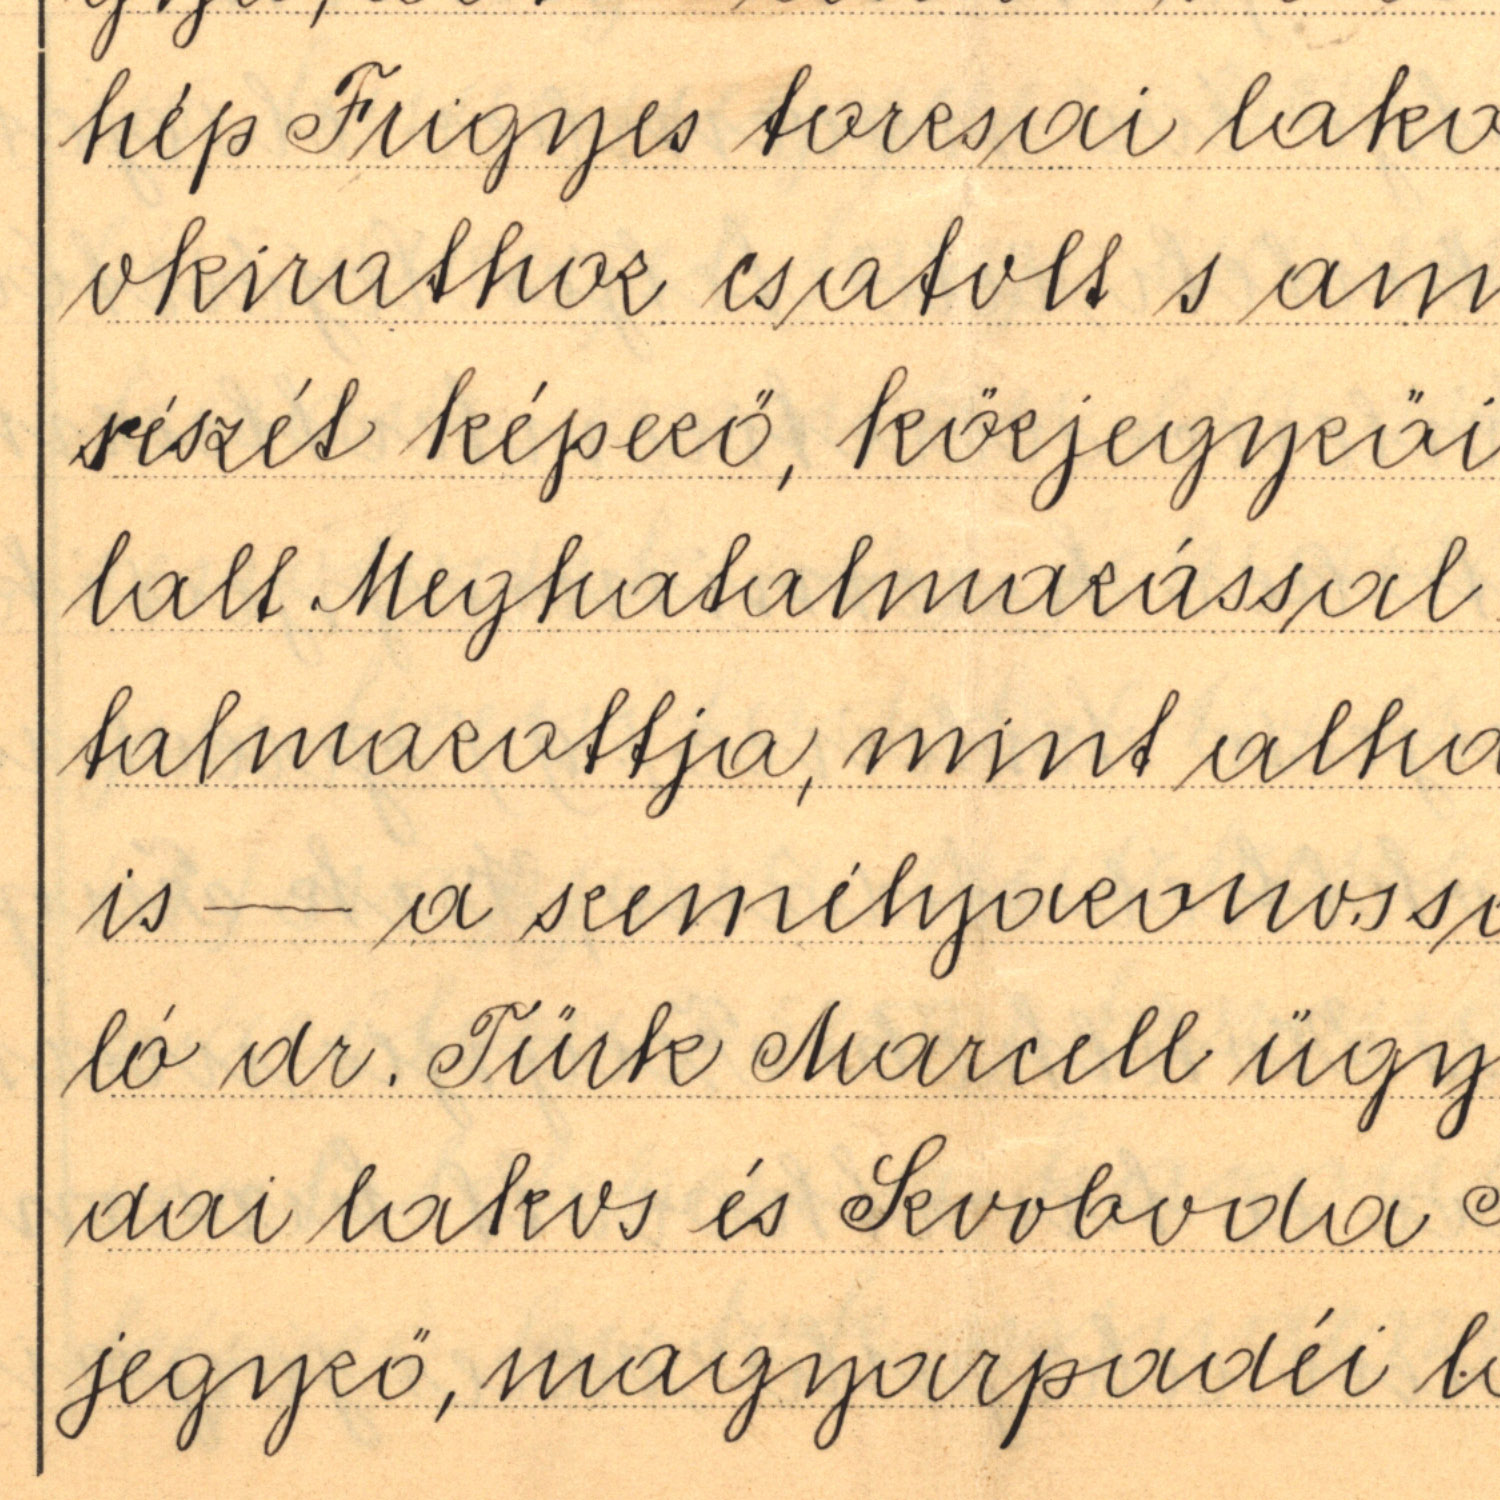 hép Frigyes torzsai lako
okirathoz csatolt s ann
részét képező, közjegyzői
lalt Meghatalmazással
talmazottja, mint alha
is — a személyazonossá
ló dr. Türk Marcell ügy
dai lakos és Szvoboda
jegyző, magyarpadéi la